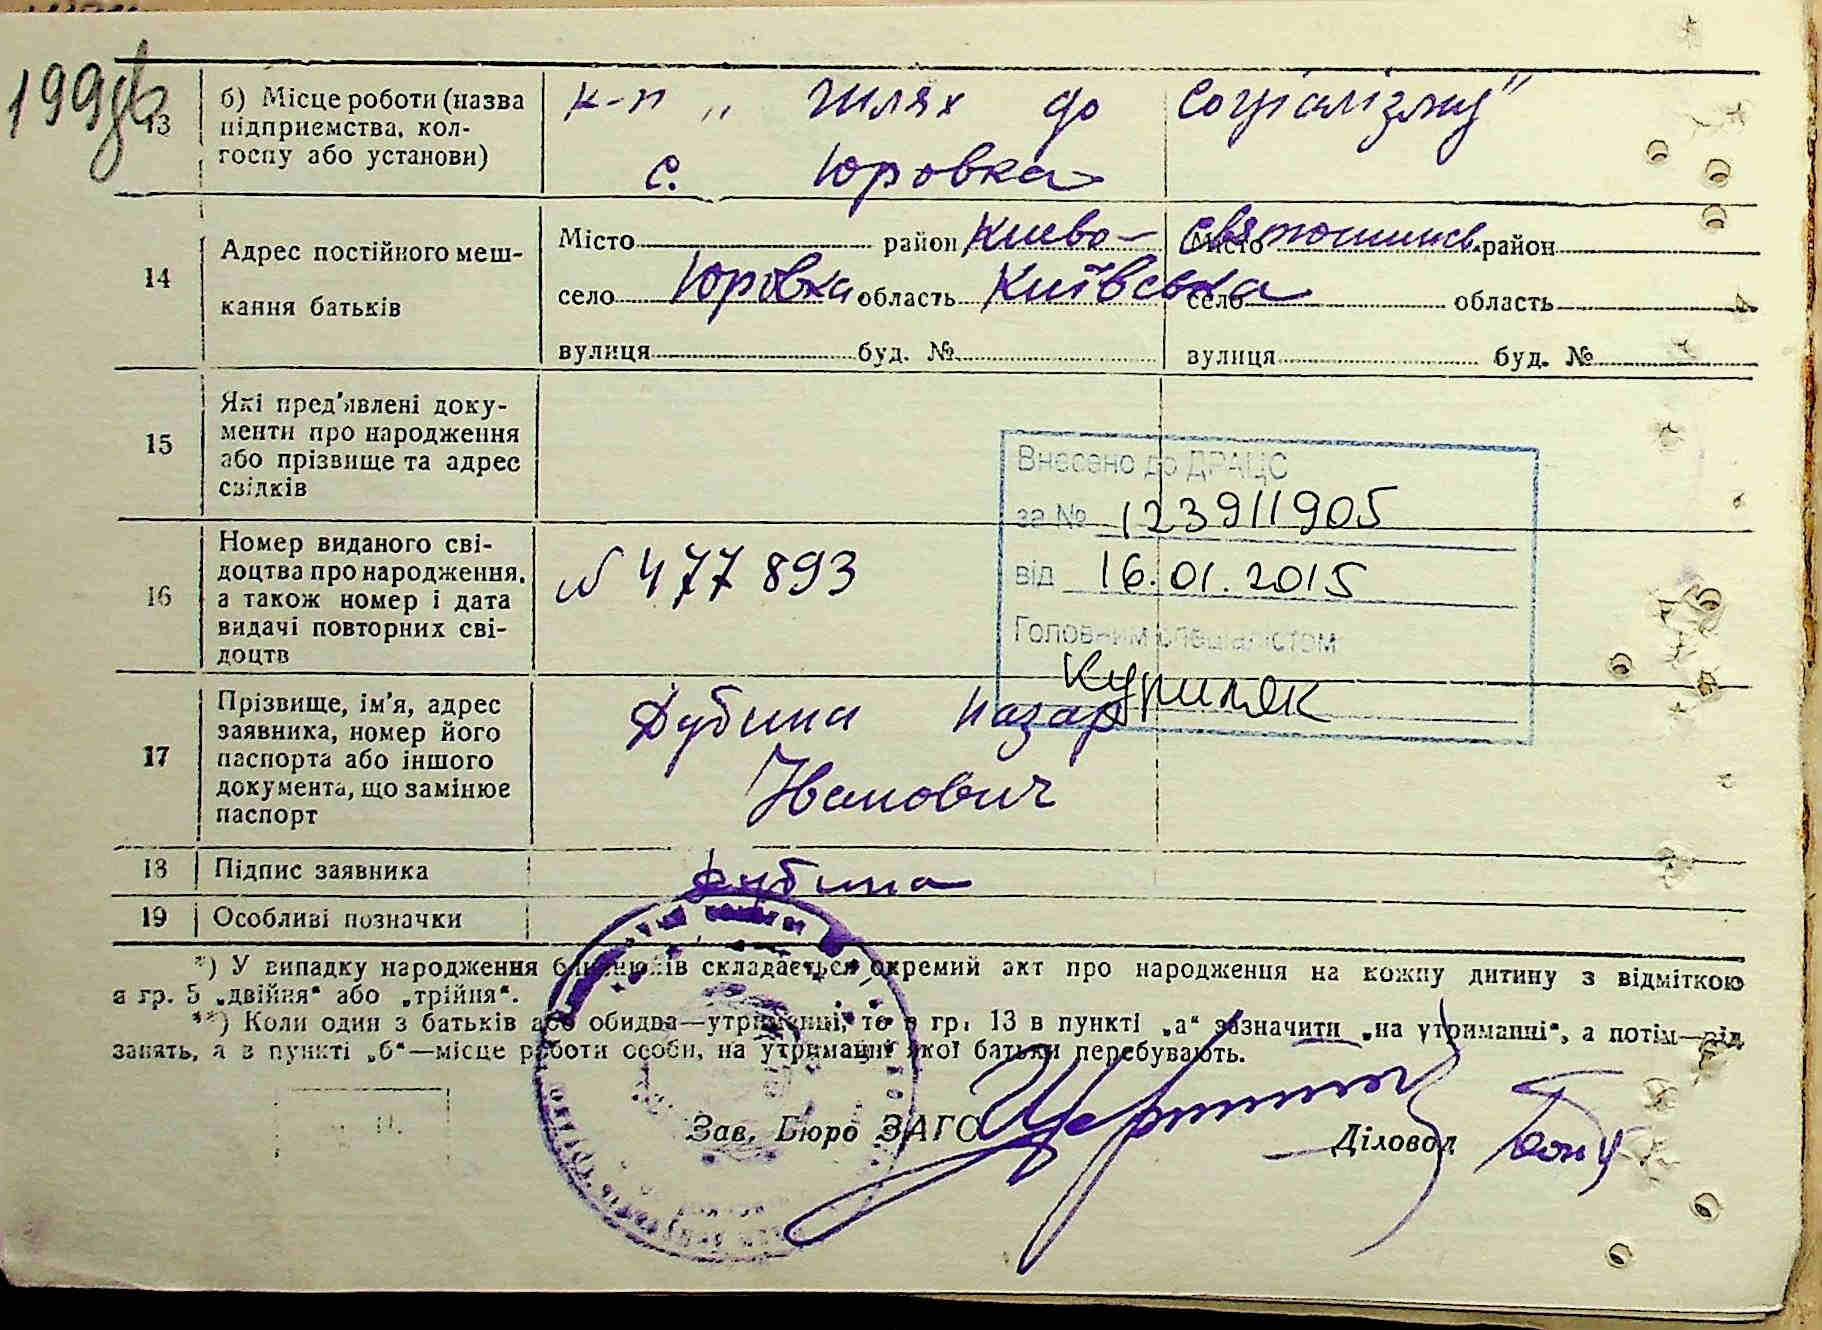 199зв
13
б) Місце роботи (назва
підприємства, кол-
госпу або установи)
к-п „ Шлях до соціалізму"
с. Юровка
14
Адрес постійного меш-
кання батьків
Місто район Києво- Місто Святошинськ. район
село Юровка область Київська село область
вулиця буд. № вулиця буд. №
15
Які пред'явлені доку-
менти про народження
або прізвище та адрес
свідків
Внесено до ДРАЦС
за № 123911905
від 16.01.2015
Головним спеціалістом
Куриляк
16
Номер виданого сві-
доцтва про народження,
а також номер і дата
видачі повторних сві-
доцтв
N 477893
17
Прізвище, ім'я, адрес
заявника, номер його
паспорта або іншого
документа, що замінює
паспорт
Дубина Назар
Иванович
18 Підпис заявника Дубина
19 Особливі позначки
*) У випадку народження близнюків складається окремий акт про народження на кожну дитину з відміткою
в гр. 5 „двійня" або „трійня".
**) Коли один з батьків або обидва—утриманці, то в гр. 13 в пункті „а" зазначити „на утриманні", а потім—рід
занять, а в пункті „б"—місце роботи особи, на утриманні якої батьки перебувають.
Зав. Бюро ЗАГС Діловод